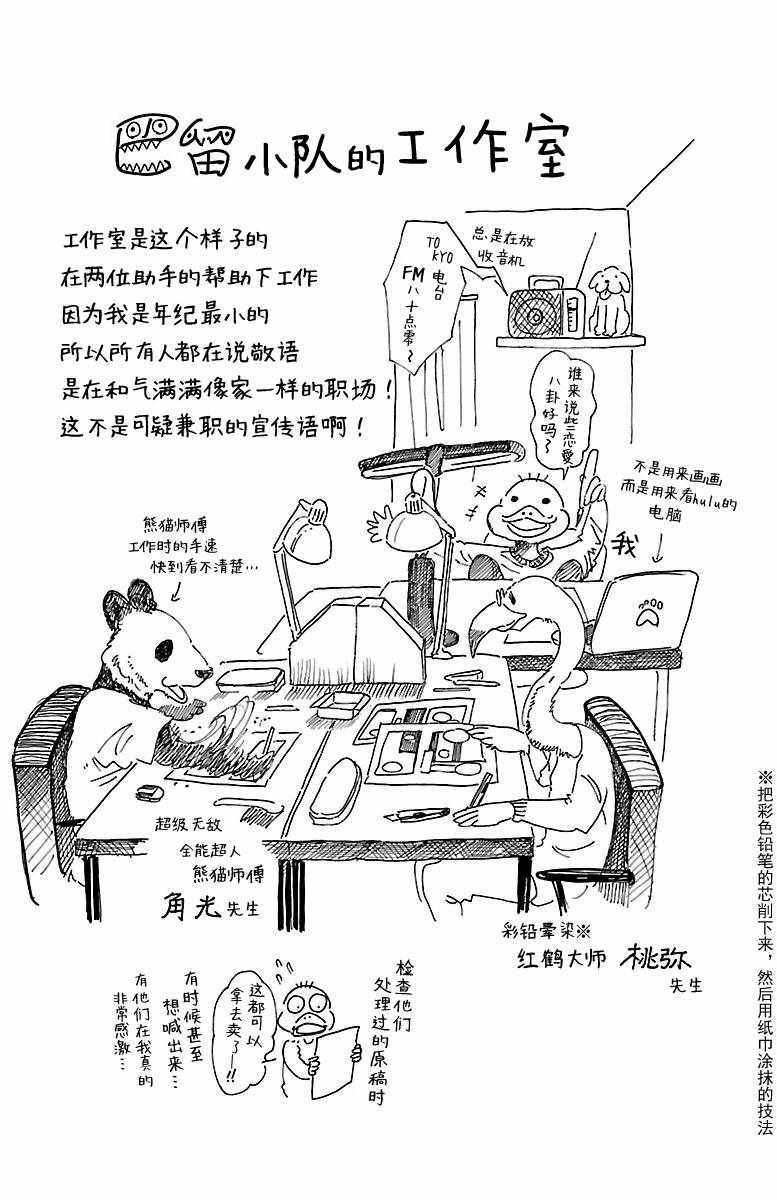 巴留小队的工作室
工作室是这个样子的
在两位助手的帮助下工作
因为我是年纪最小的
所以所有人都在说敬语
是在和气满满像家一样的职场！
这不是可疑兼职的宣传语啊！
总是在放
收音机
TO
KYO
FM电台
八十点零～
谁来说些恋爱
八卦好吗～
我
不是用来画画
而是用来看hulu的
电脑
熊猫师傅
工作时的手速
快到看不清楚…
超级无敌
全能超人
熊猫师傅
角光先生
彩铅晕染※
红鹤大师 桃弥
先生
※把彩色铅笔的芯削下来，然后用纸巾涂抹的技法
检查他们
处理过的原稿时
这都可以
拿去卖了—!!
有时候甚至
想喊出来…
有他们在我真的
非常感激…